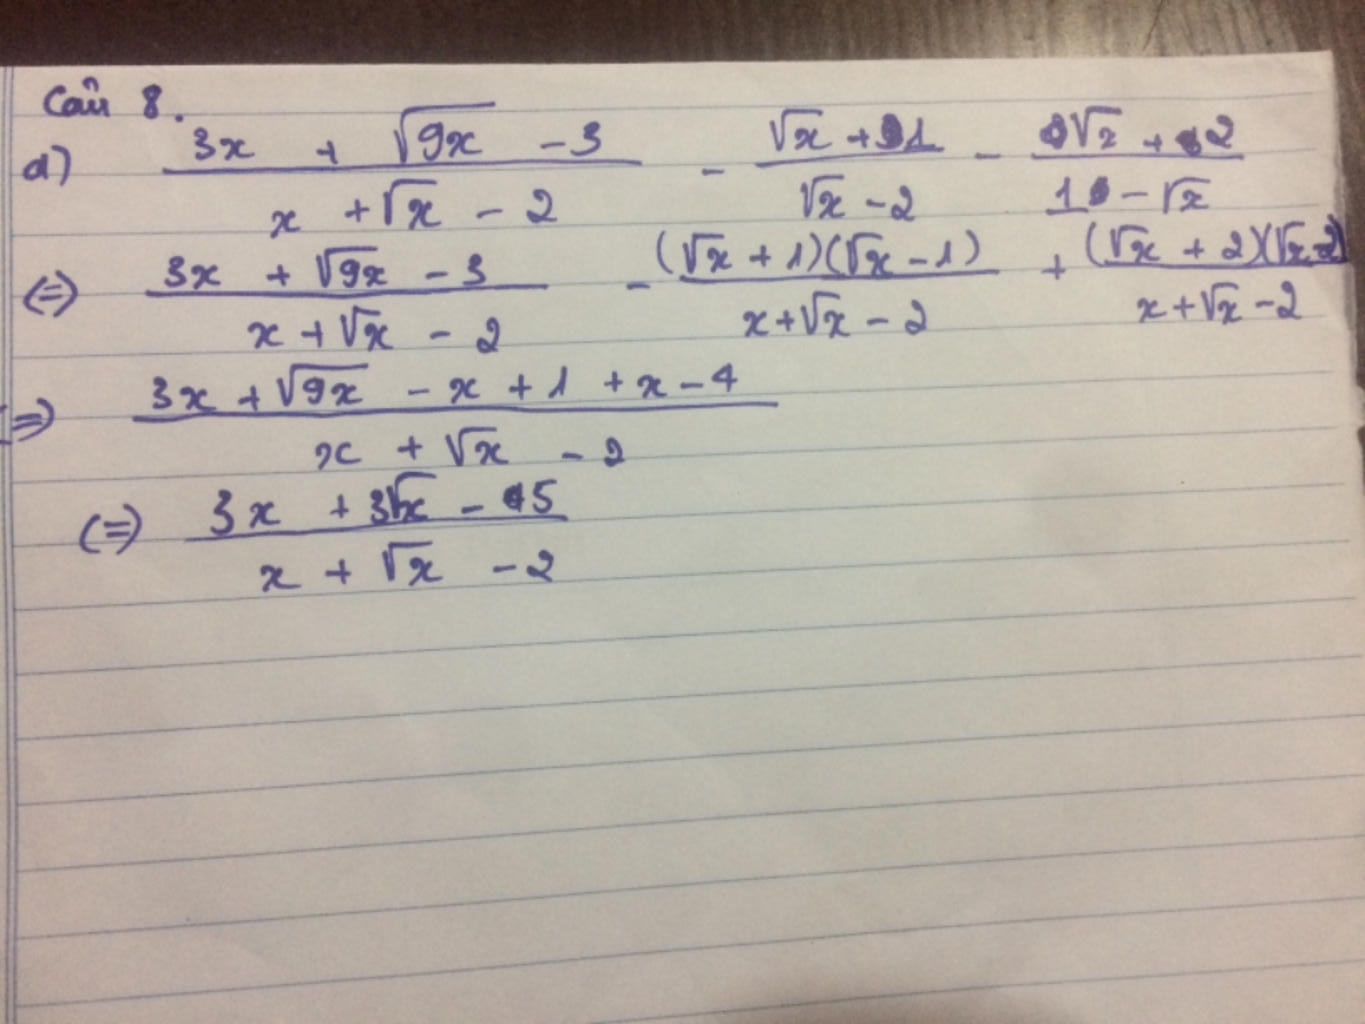 Câu 8.
a) (3x + √9x - 3)/(x + √x - 2) - (√x + 1)/(√x - 2) - (√x + 2)/(1 - √x)
(=) (3x + √9x - 3)/(x + √x - 2) - ((√x + 1)(√x - 1))/(x + √x - 2) + ((√x + 2)(√x - 2))/(x + √x - 2)
(=) (3x + √9x - x + 1 + x - 4)/(x + √x - 2)
(=) (3x + 3√x - 5)/(x + √x - 2)